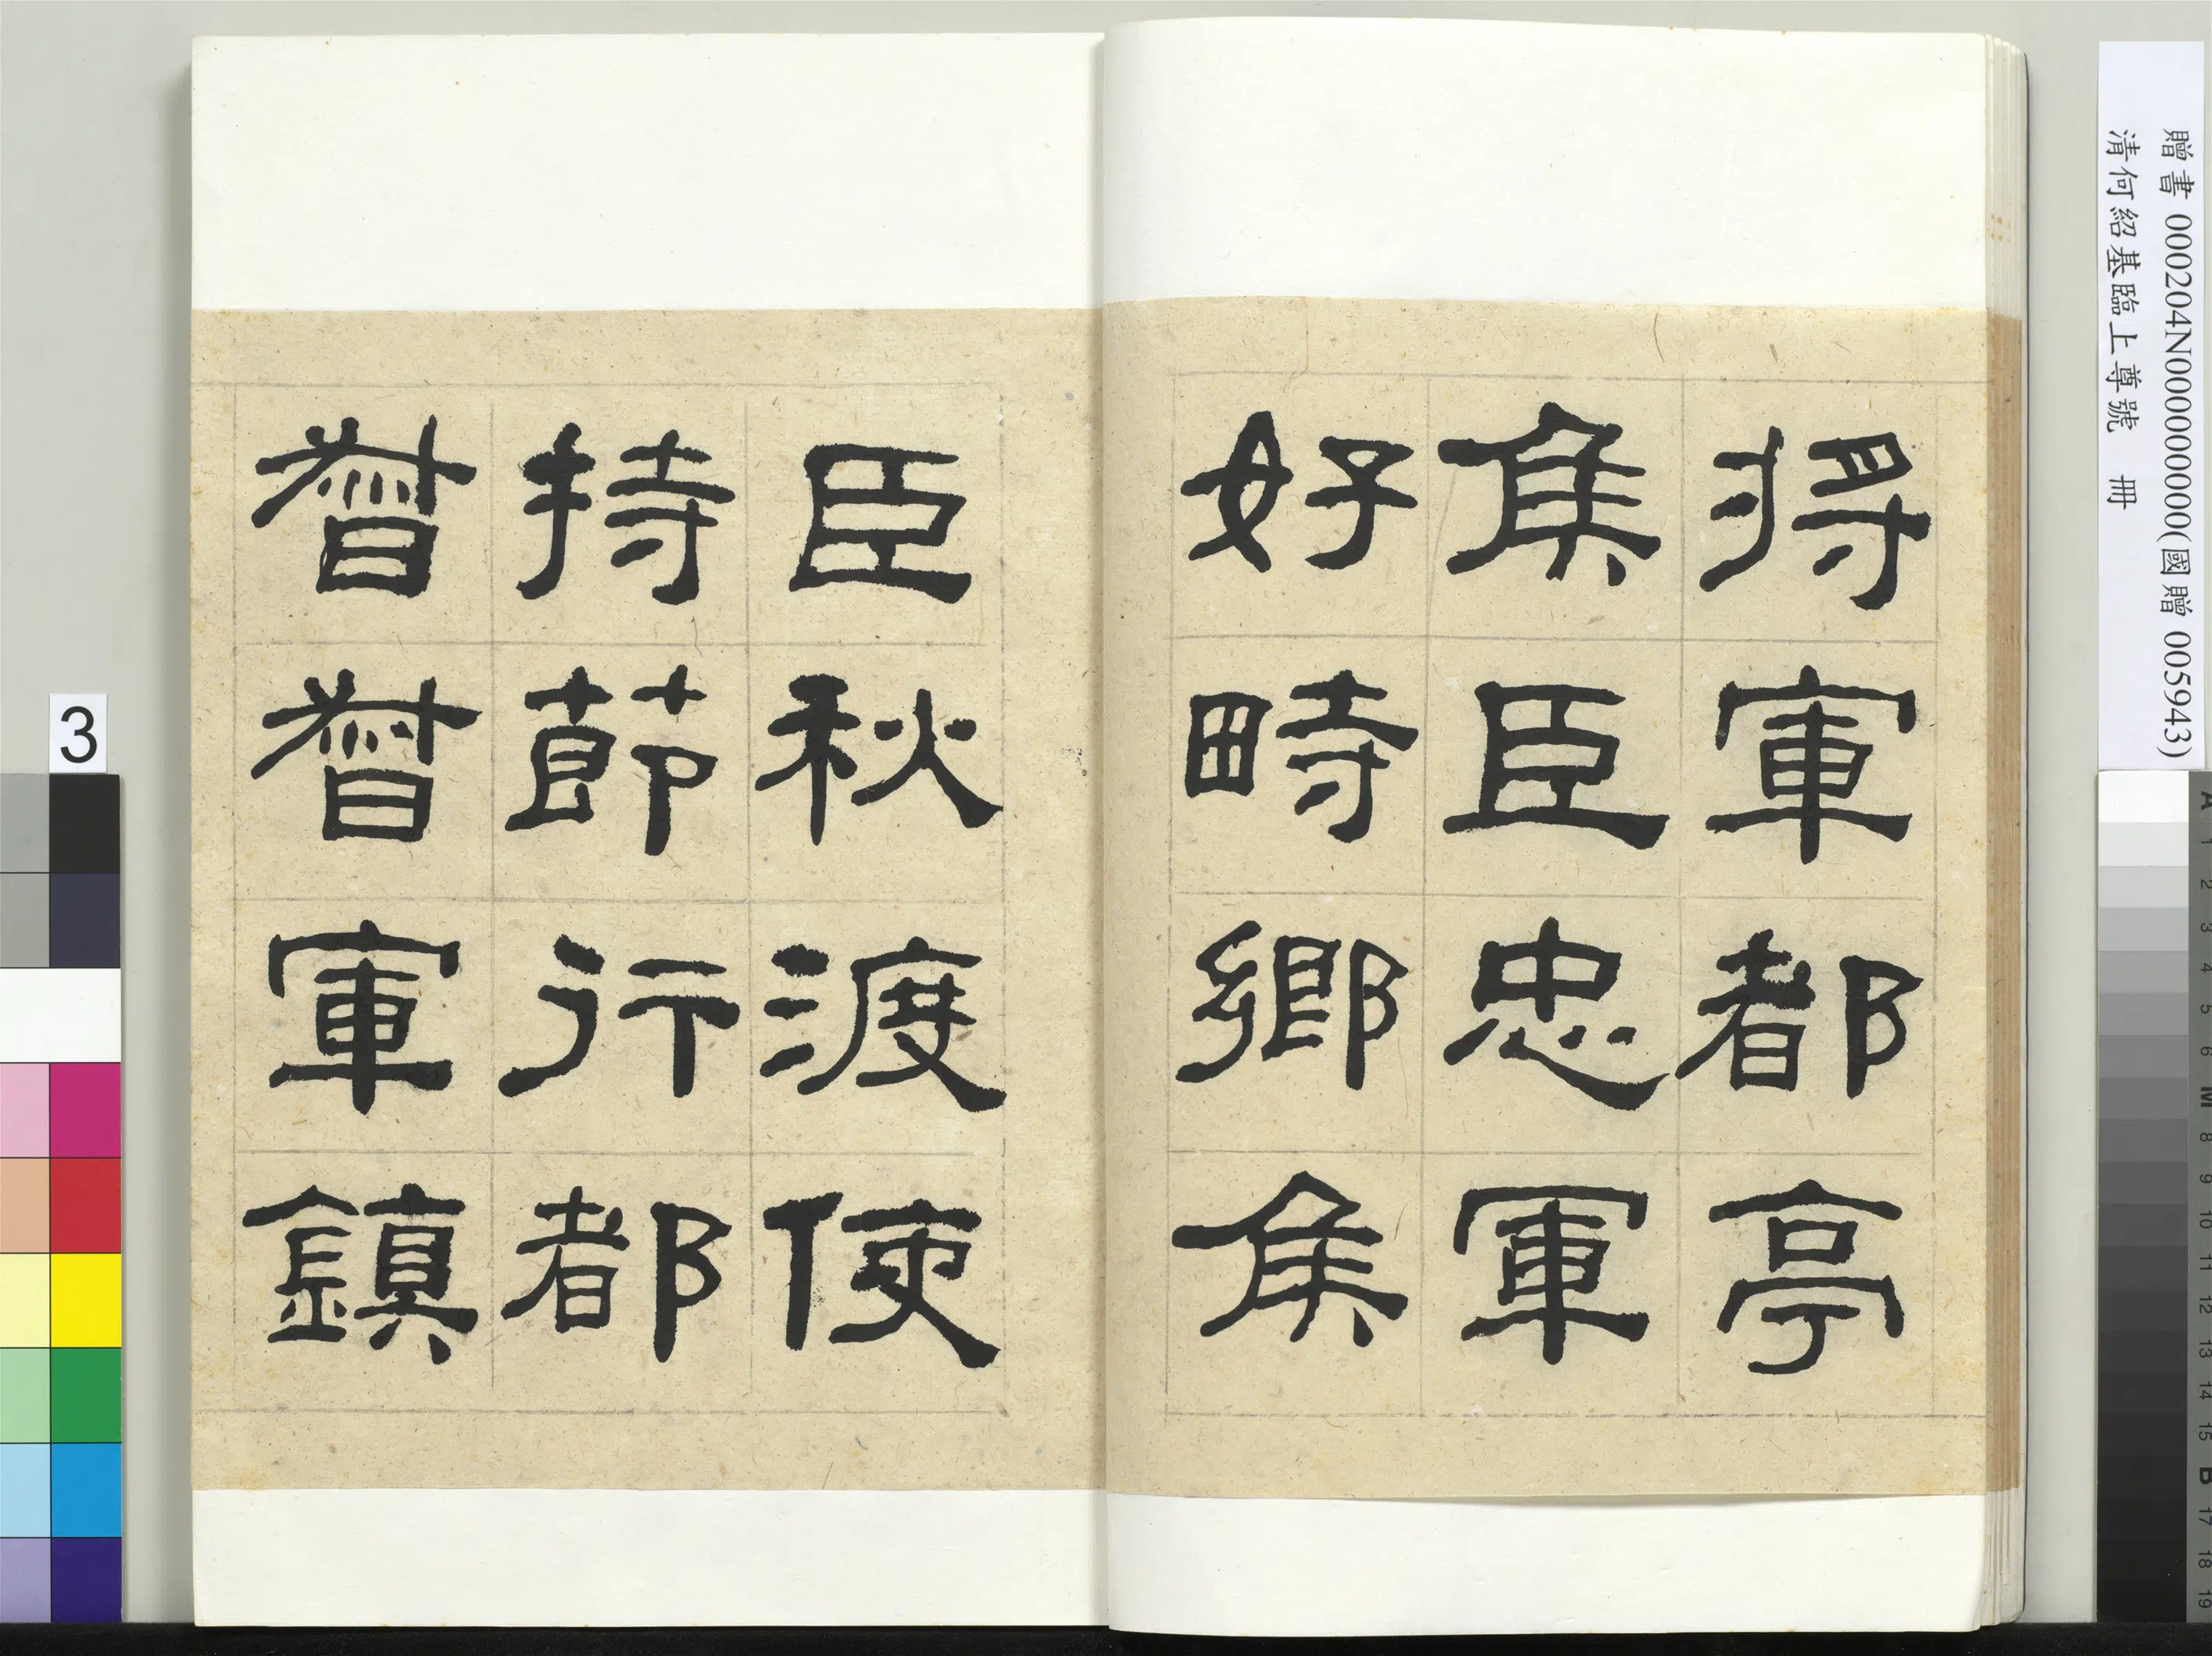 贈書 000204N000000000(國贈 005943)
清何紹基臨上尊號 冊
將軍都亭
侯臣忠軍
好畤鄉侯
臣秋渡使
持節行都
督督軍鎮
3
A 1 2 3 4 5 6 M 8 9 10 11 12 13 14 15 B 17 18 19